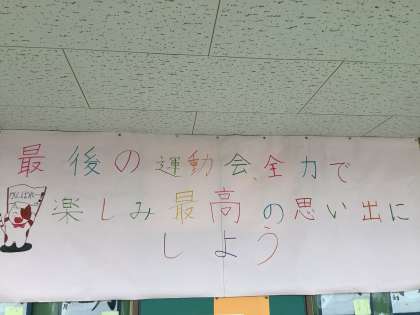 最後の運動会、全力で
楽しみ最高の思い出に
しよう